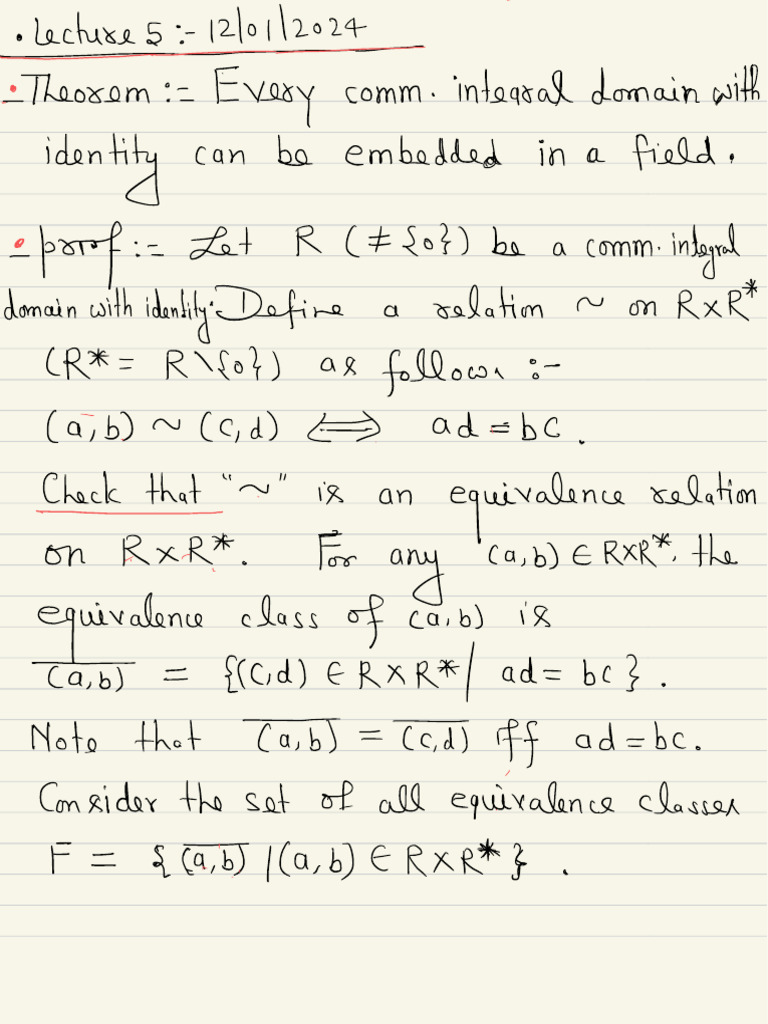 • Lecture 5 :- 12/01/2024
- Theorem := Every comm. integral domain with
identity can be embedded in a field.
- proof := Let R (≠ {0}) be a comm. integral
domain with identity. Define a relation ~ on R×R*
(R* = R\{0}) as follows :-
(a,b) ~ (c,d) ⟺ ad = bc.
Check that "~" is an equivalence relation
on R×R*. For any (a,b) ∈ R×R*, the
equivalence class of (a,b) is
\overline{(a,b)} = {(c,d) ∈ R×R* | ad = bc}.
Note that \overline{(a,b)} = \overline{(c,d)} iff ad = bc.
Consider the set of all equivalence classes
F = {\overline{(a,b)} | (a,b) ∈ R×R*}.